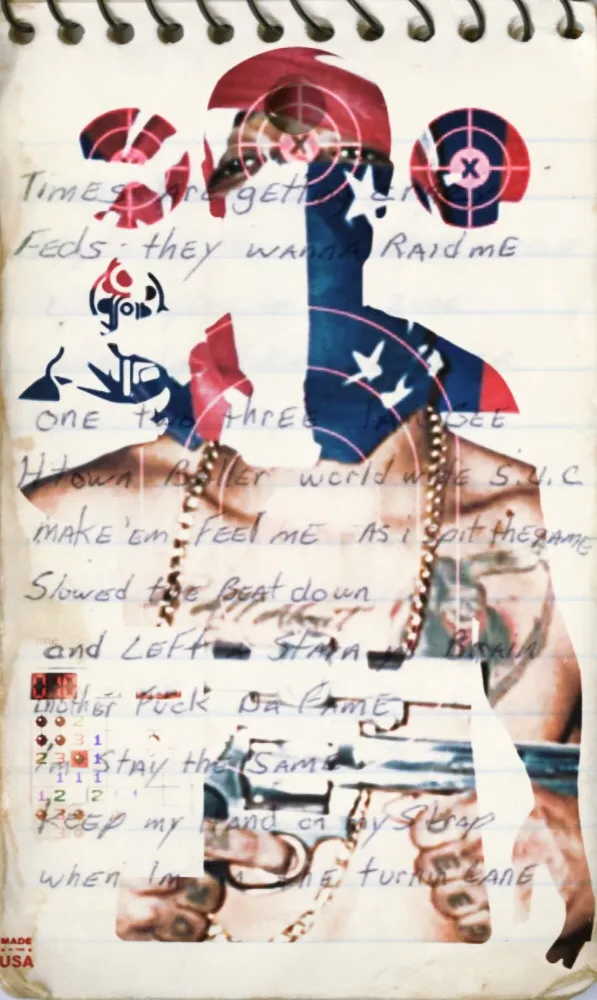 Times Are getting
Feds - they wanna Raid me
one two three
Htown Baller world wide S.U.C
make 'em Feel me As i spit the game
Slowed the Beat down
and LEFT a Stain yo Brain
mother Fuck Da Fame
I'm Stay the Same
KEEP my Hand on my Strap
when Im the turnin LANE
MADE
USA